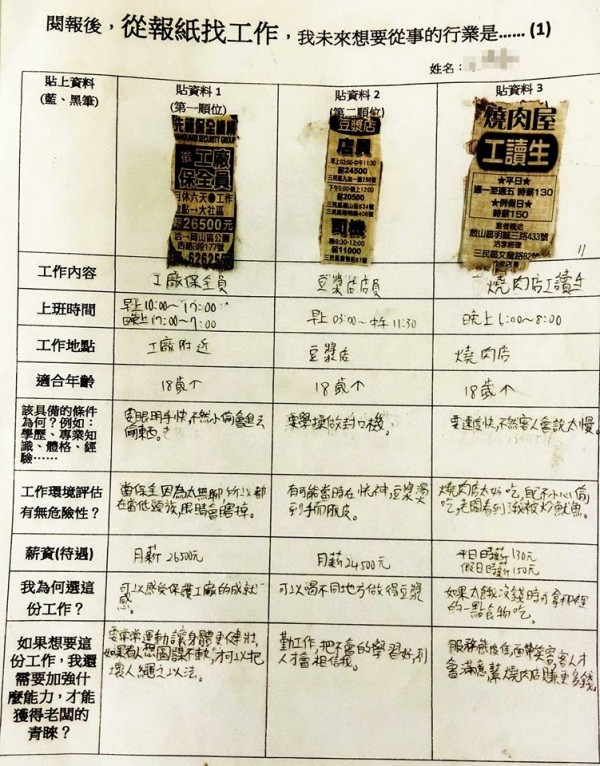 閱報後，從報紙找工作，我未來想要從事的行業是……(1)
姓名：
貼上資料
(藍、黑筆)
貼資料 1
(第一順位)
貼資料 2
(第二順位)
貼資料 3
工廠
保全員
26500元
豆漿店
店員
24500
司機
11000
燒肉屋
工讀生
★平日★
週一至週五 時薪130
★例假日★
時薪150
工作內容
工廠保全員
豆漿店店員
燒肉店工讀生
上班時間
早上10:00~17:00
晚上17:00~7:00
早上03:00~中午11:30
晚上6:00~8:00
工作地點
工廠附近
豆漿店
燒肉店
適合年齡
18歲↑
18歲↑
18歲↑
該具備的條件
為何？例如：
學歷、專業知
識、體格、經
驗……
要眼明手快，不然小偷會進去
偷東西。
要學換做封口機。
要速度快，不然客人會說太慢。
工作環境評估
有無危險性？
當保全因為太無聊所以都
在當低頭族，眼睛會瞎掉。
有可能當時在恍神，豆漿燙
到手而脫皮。
燒肉店太好吃，自己不小心偷
吃，老闆看到，我被炒魷魚。
薪資(待遇)
月薪26500元
月薪24500元
平日時薪130元
假日時薪150元
我為何選這
份工作？
可以感受保護工廠的成就
感。
可以喝不同地方做得豆漿
如果太餓沒錢時可拿那裡
的一點食物吃。
如果想要這
份工作，我還
需要加強什
麼能力，才能
獲得老闆的
青睞？
要常常運動讓身體更健壯，
如果有人想圖謀不軌，才可以把
壞人繩之以法。
勤工作，把不會的學習好，別
人才會相信我。
服務態度佳，面帶笑容，客人才
會滿意，幫燒肉店賺更多錢。